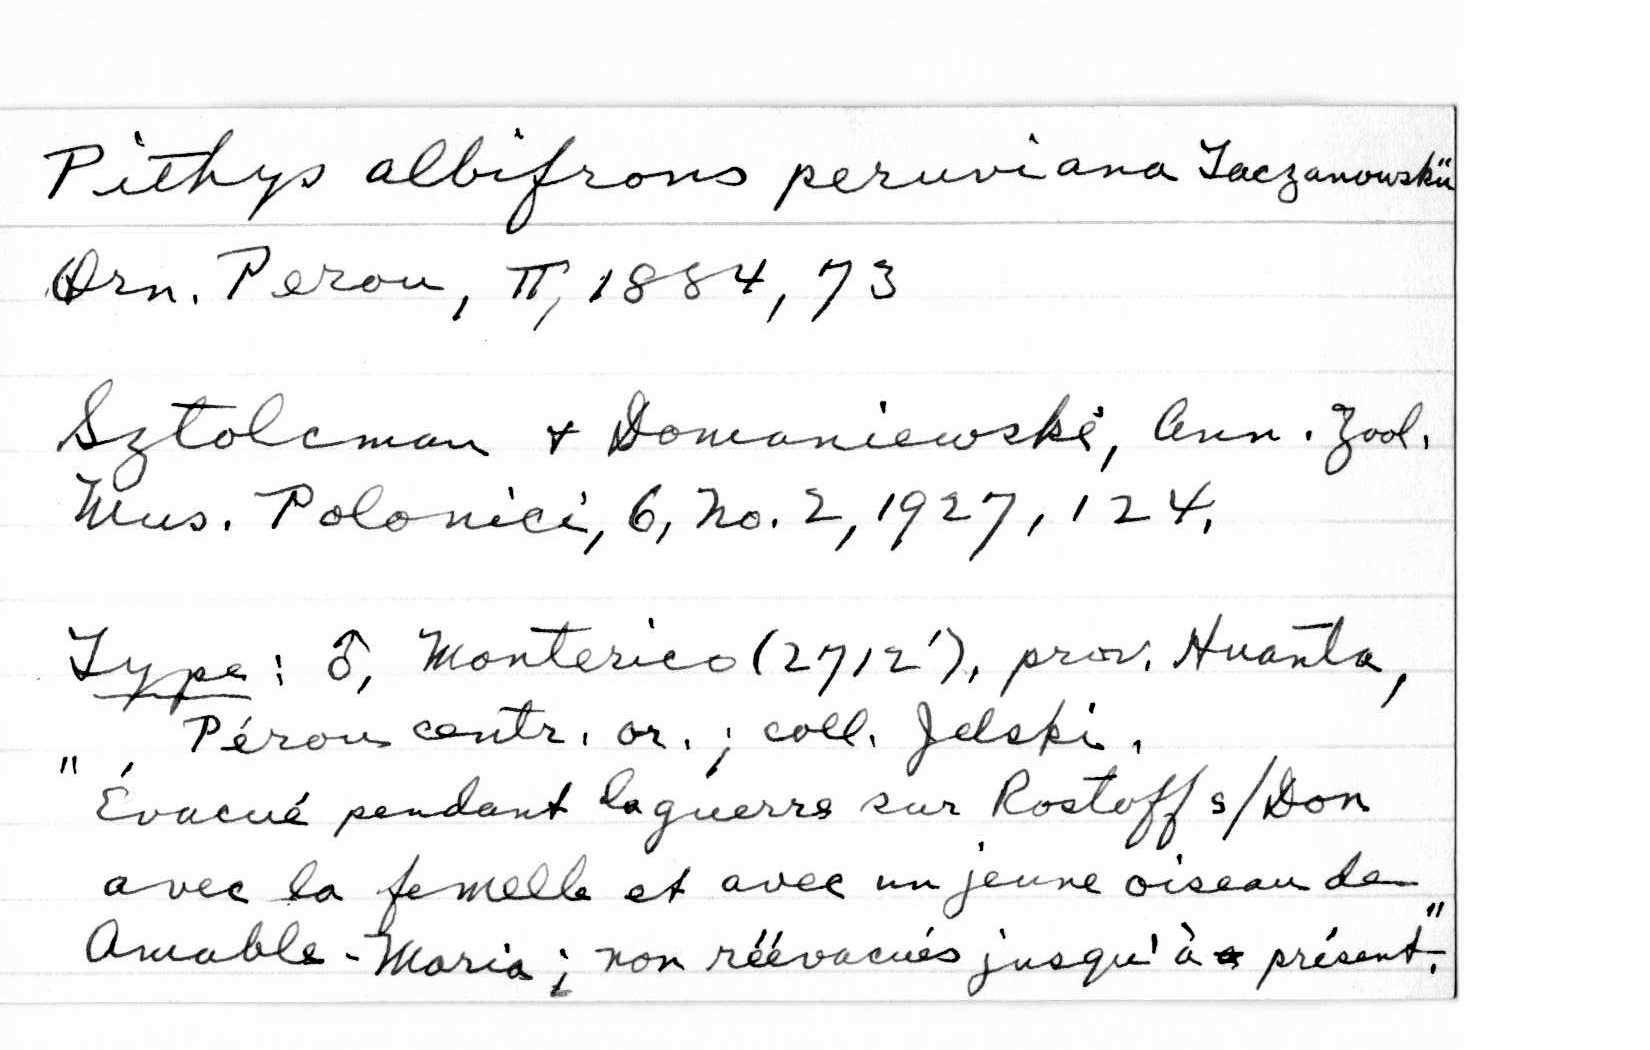 Pithys albifrons peruviana Taczanowskii
Orn. Perou, II, 1884, 73
Sztolcman + Domaniewski, Ann. Zool.
Mus. Polonici, 6, No. 2, 1927, 124.
Type: ♂, Monterico (2712'), prov. Huanta,
Pérou centr. or.; coll. Jelski.
"Évacué pendant la guerre sur Rostoff s/Don
avec la femelle et avec un jeune oiseau de
Amable-Maria; non réévacués jusqu'à présent."